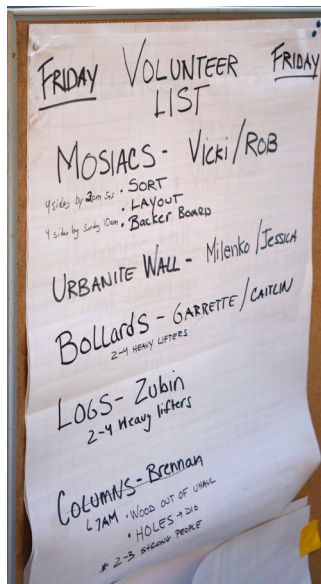 FRIDAY VOLUNTEER FRIDAY
LIST
MOSIACS - Vicki/ROB
4 sides by 2pm Sat • SORT
• LAYOUT
4 sides by Sunday 10am • Backer Board
URBANITE WALL - Milenko/Jessica
Bollards - GARRETTE/CAITLIN
2-4 HEAVY LIFTERS
LOGS - Zubin
2-4 Heavy lifters
COLUMNS - Brennan
7AM • WOOD OUT OF UHAUL
• HOLES → DIG
* 2-3 STRONG PEOPLE